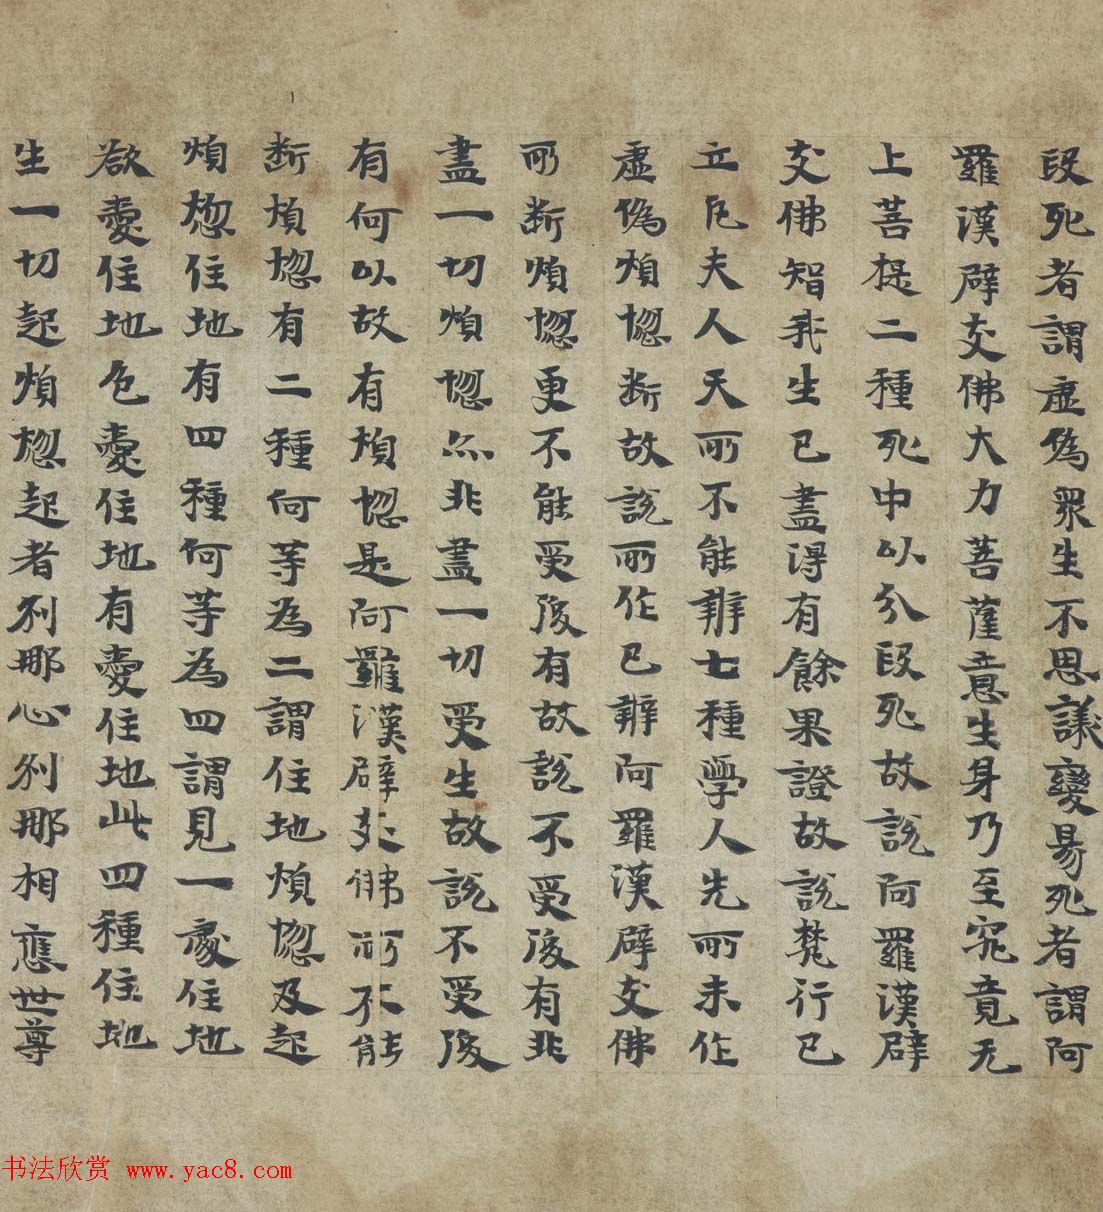 段死者謂虛偽眾生不思議變易死者謂阿
羅漢辟支佛大力菩薩意生身乃至究竟无
上菩提二種死中以分段死故說阿羅漢辟
支佛智我生已盡得有餘果證故說梵行已
立凡夫人天所不能辦七種學人先所未作
虛偽煩惚斷故說所作已辦阿羅漢辟支佛
所斷煩惚更不能受後有故說不受後有非
盡一切煩惚亦非盡一切受生故說不受後
有何以故有煩惚是阿羅漢辟支佛所不能
断煩惚有二種何等為二謂住地煩惚及起
煩惚住地有四種何等為四謂見一處住地
欲愛住地色愛住地有愛住地此四種住地
生一切起煩惚起者刹那心刹那相應世尊
书法欣赏 www.yac8.com